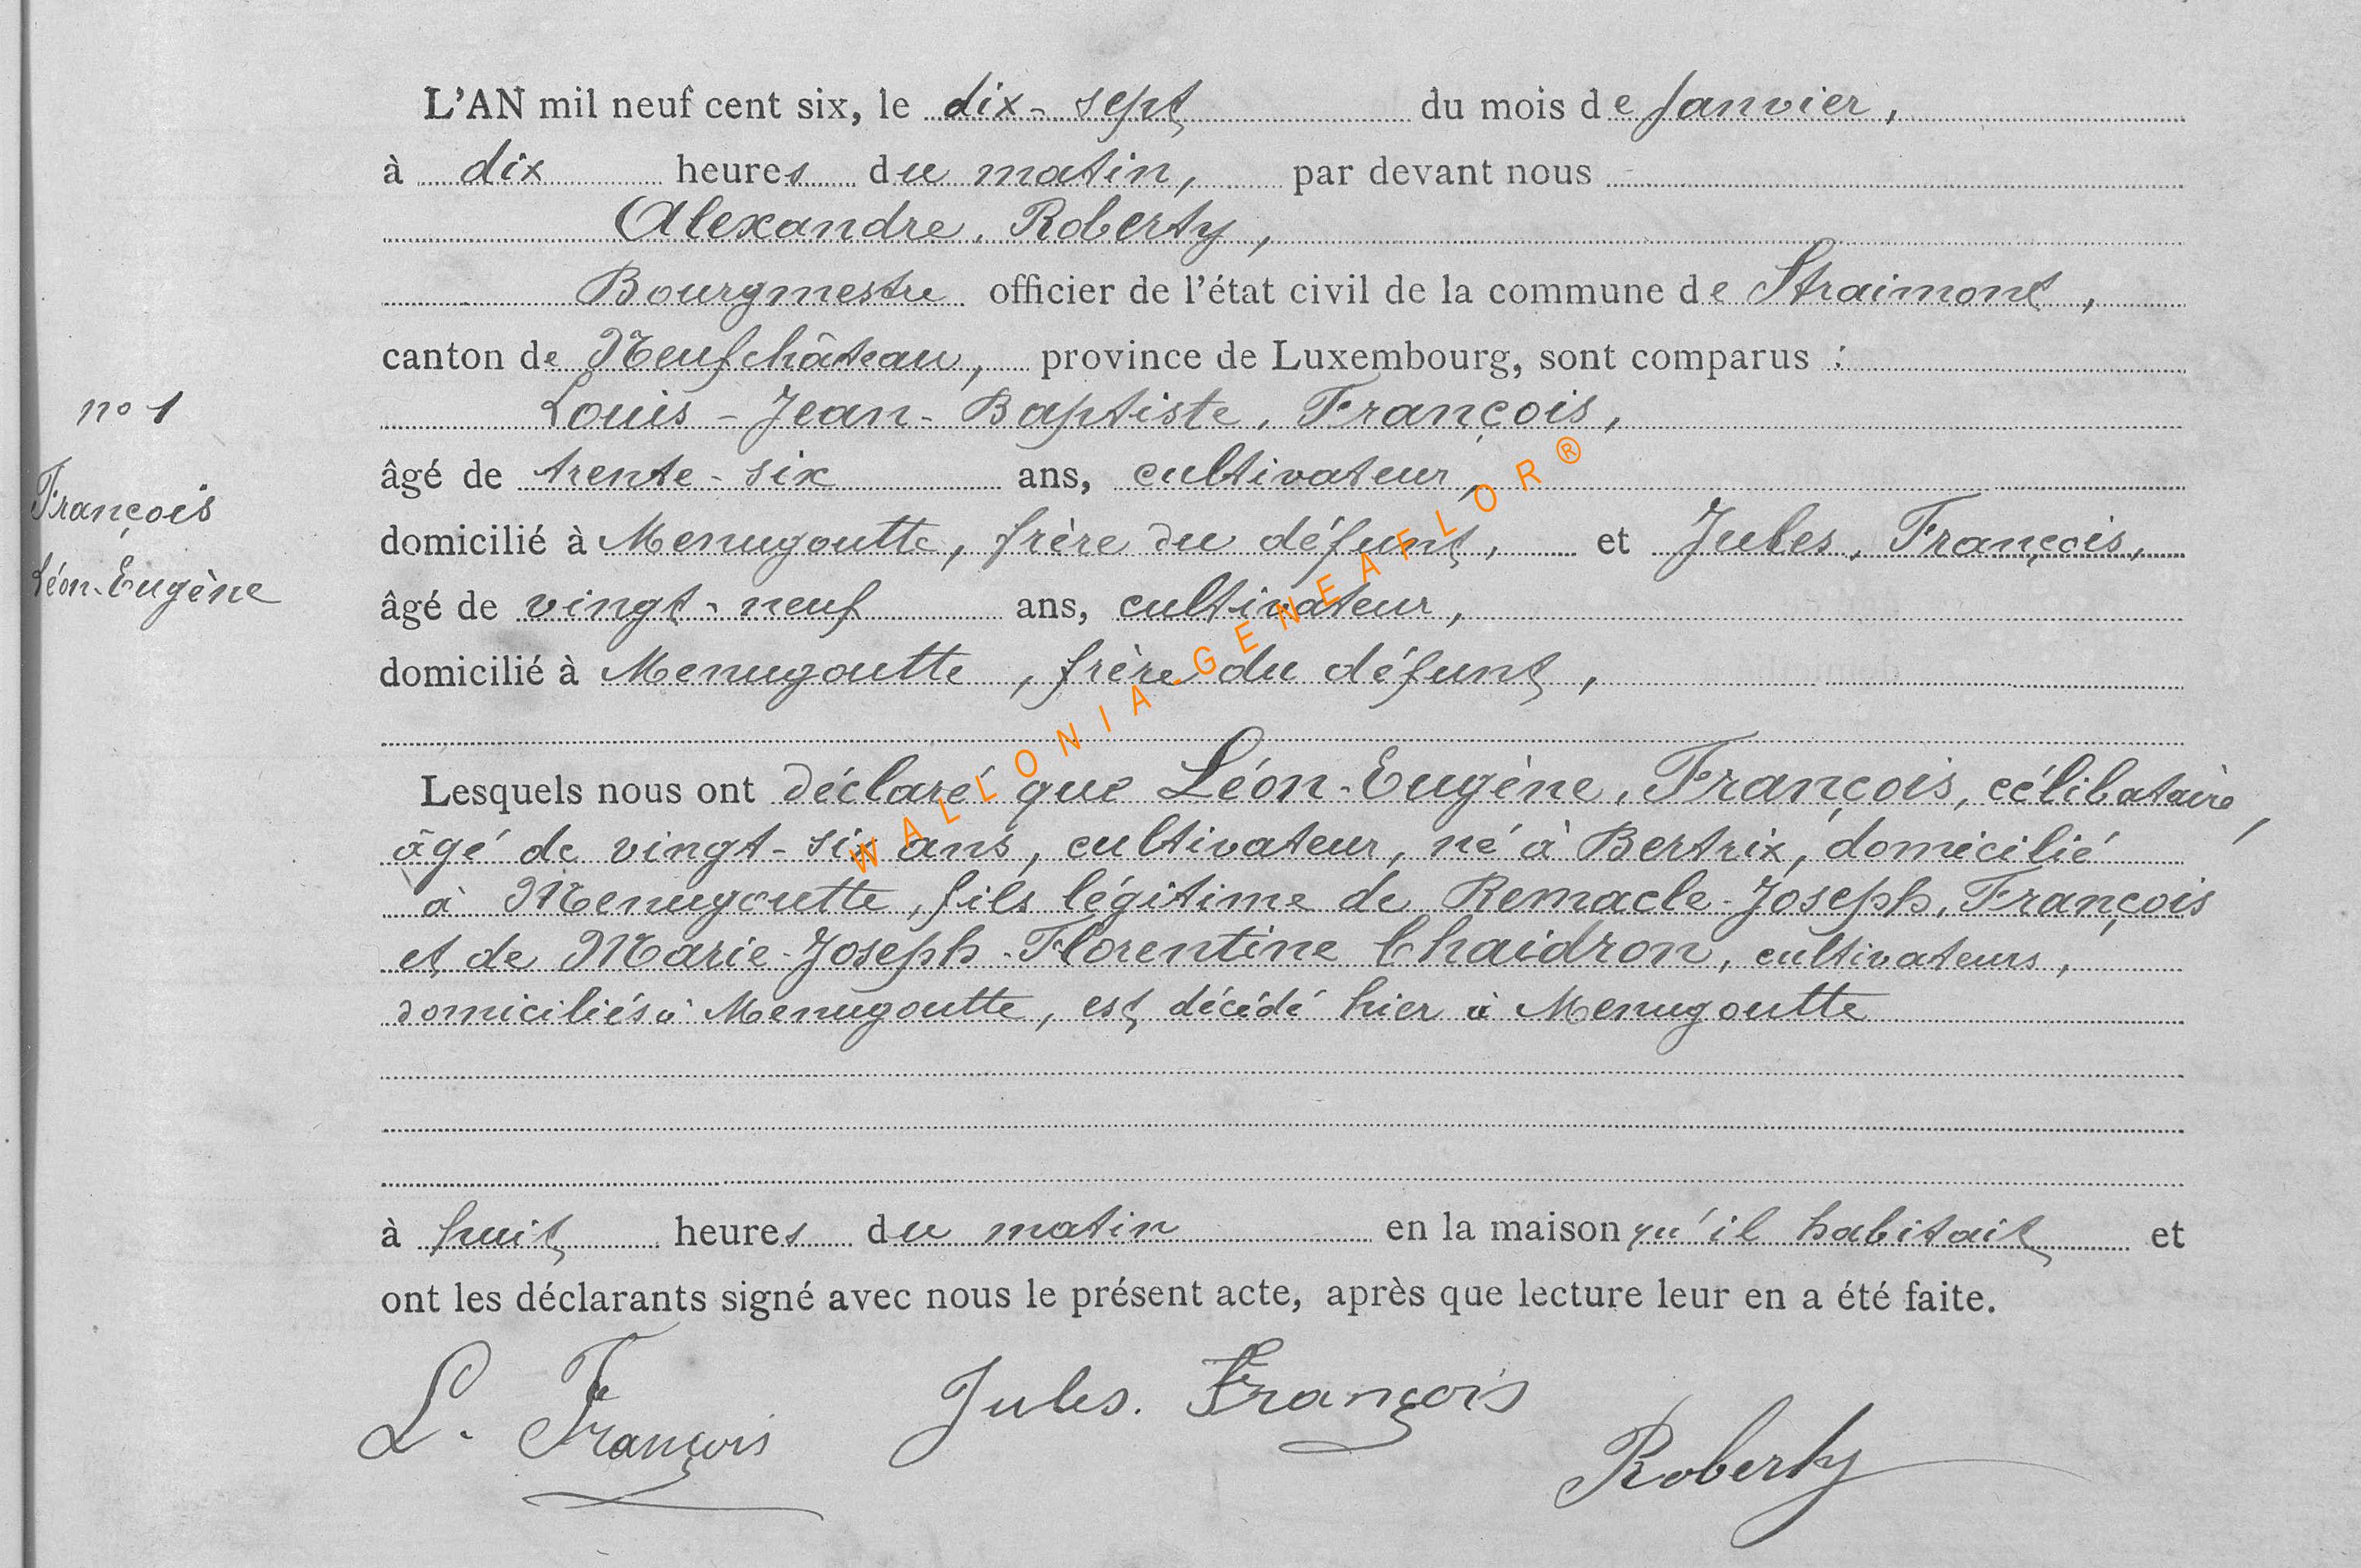 L'AN mil neuf cent six, le dix-sept du mois de Janvier,
à dix heures du matin, par devant nous
Alexandre, Roberty,
Bourgmestre officier de l'état civil de la commune de Straimont,
canton de Neufchâteau, province de Luxembourg, sont comparus :
n° 1
Louis-Jean-Baptiste, François,
âgé de trente-six ans, cultivateur,
François
domicilié à Menugoutte, frère du défunt, et Jules, François,
Léon-Eugène
âgé de vingt-neuf ans, cultivateur,
domicilié à Menugoutte, frère du défunt,
Lesquels nous ont déclaré que Léon-Eugène, François, célibataire,
âgé de vingt-six ans, cultivateur, né à Bertrix, domicilié
à Menugoutte, fils légitime de Remacle-Joseph, François
et de Marie-Joseph-Florentine Chaidron, cultivateurs,
domiciliés à Menugoutte, est décédé hier à Menugoutte
à huit heures du matin en la maison qu'il habitait et
ont les déclarants signé avec nous le présent acte, après que lecture leur en a été faite.
L. François Jules. François
Roberty
WALLONIA-GENEAFLOR®